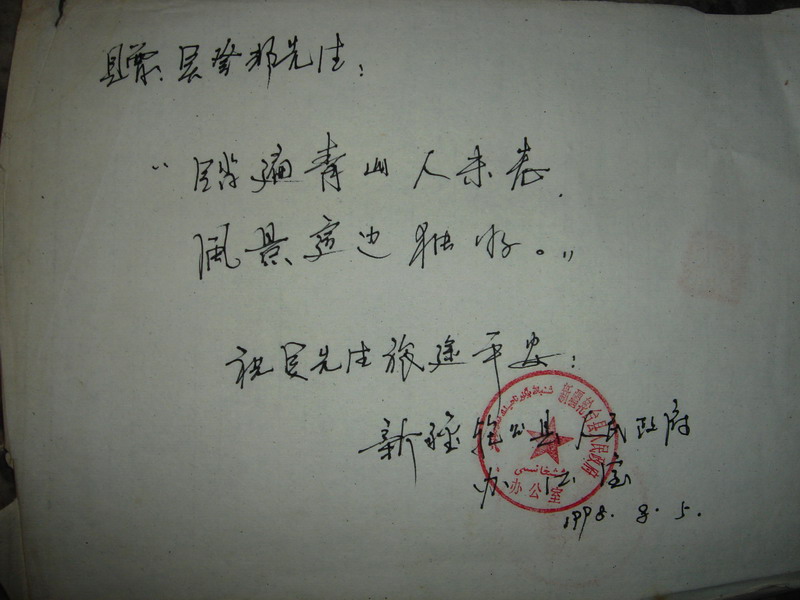 赠: 先生:
“踏遍青山人未老.
风景这边独好。”
祝吴先生旅途平安:
新疆轮台县人民政府
办公室
1998.8.5.
新疆轮台县人民政府
办公室